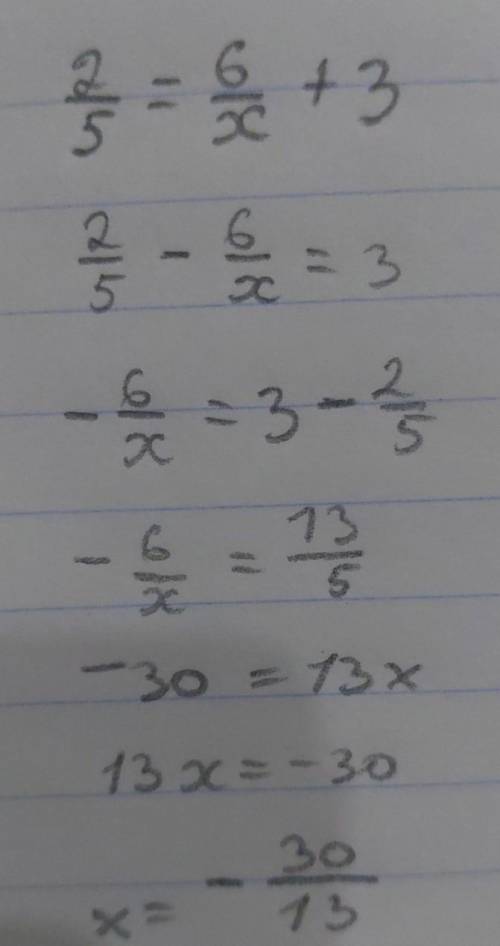 2/5 = 6/x + 3
2/5 - 6/x = 3
- 6/x = 3 - 2/5
- 6/x = 13/5
-30 = 13x
13x = -30
x = - 30/13